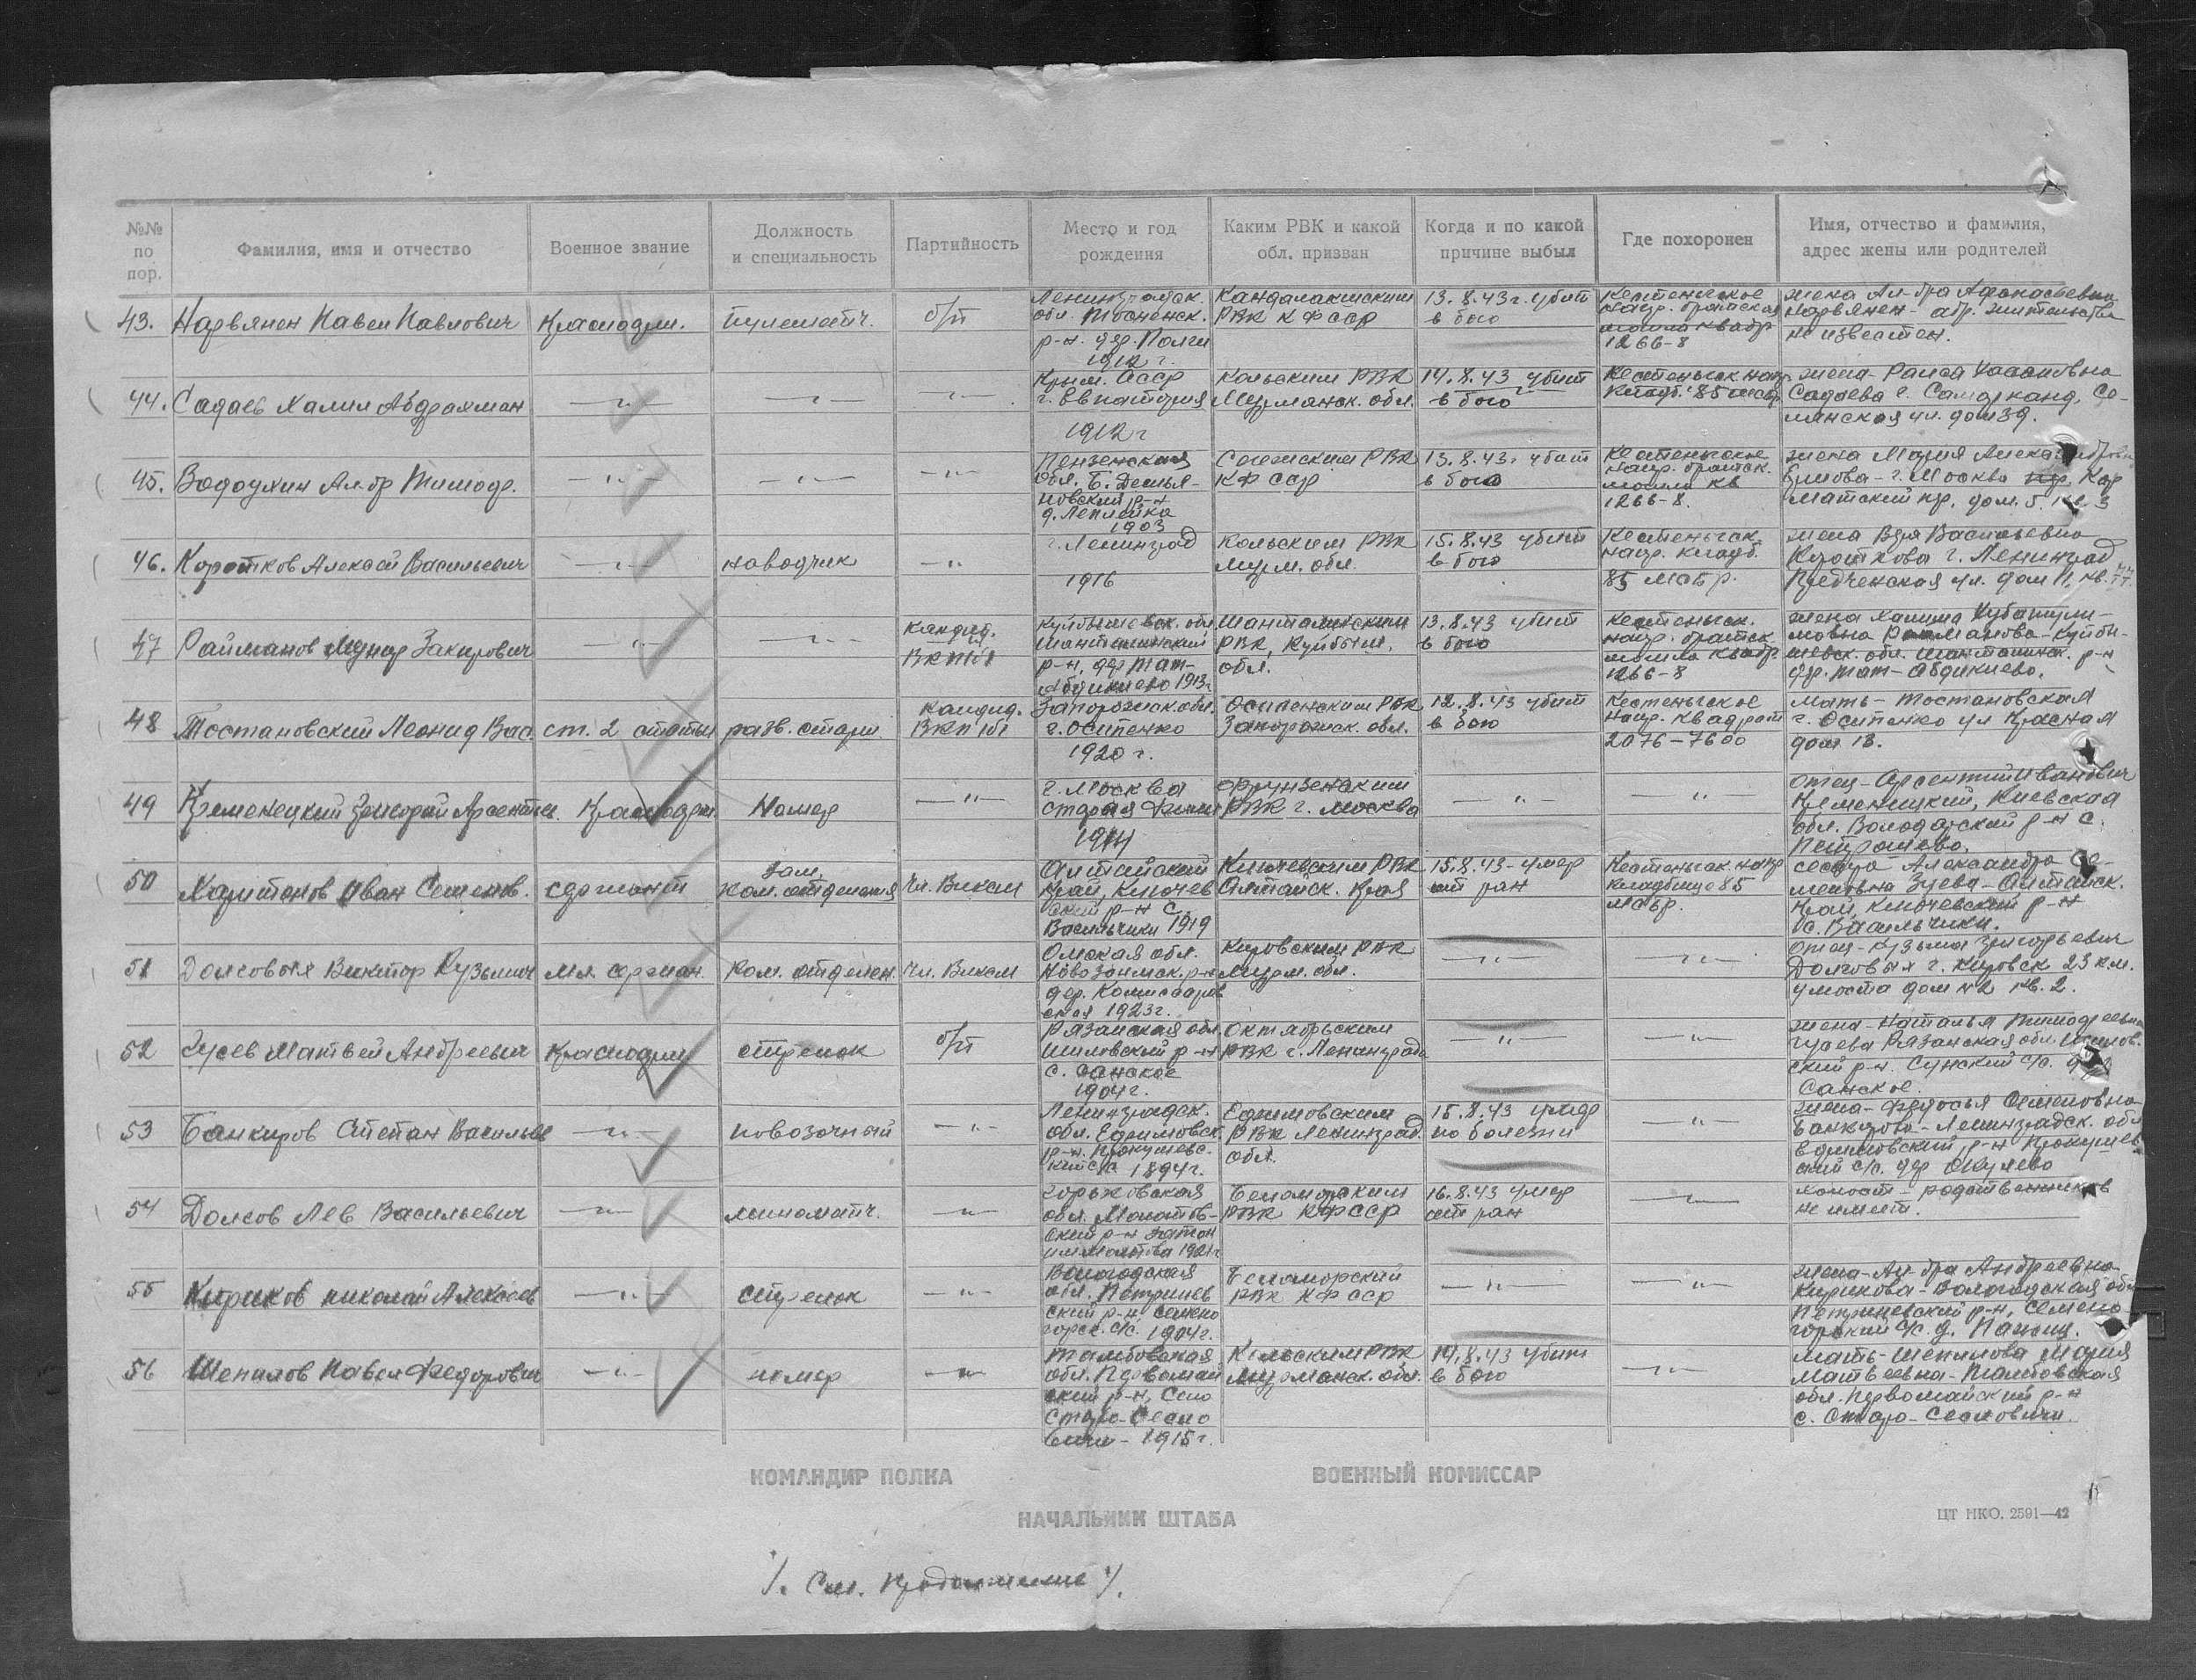 №№ по пор.
Фамилия, имя и отчество
Военное звание
Должность и специальность
Партийность
Место и год рождения
Каким РВК и какой обл. призван
Когда и по какой причине выбыл
Где похоронен
Имя, отчество и фамилия, адрес жены или родителей
43. Нарвянен Павел Павлович
Красноарм.
пулеметч.
б/п
Ленинградск.
обл. Тосненск.
р-н. дер.
1912 г.
Кандалакшским
РВК КФССР
13.8.43 г. убит
в бою
Кестеньгское
напр. братская
могила квадр
1266-8
жена Ал-дра Афанасьевна
Нарвянен - адр. жительства
не известен.
44. Садаев Халил Абдрахман
—"—
—"—
—"—
Крым. АССР
г. Евпатория
1912 г
Кольским РВК
Мурманск. обл.
14.8.43 убит
в бою
Кестеньгск напр.
Кладб. 85 мсбр
жена - Раиса
Садаева г. Самарканд,
ул. дом 39.
45. Ал-др Тимоф.
—"—
—"—
—"—
Пензенская
обл. Б. Демья-
новский р-н
д. Леплейка
1903
РВК
КФССР
13.8.43 г. убит
в бою
Кестеньгское
напр. братск.
могила кв
1266-8.
жена Мария
г. Москва
пр. дом. 5. кв. 3
46. Коротков Алексей Васильевич
—"—
наводчик
—"—
г. Ленинград
1916
Кольским РВК
Мурм. обл.
15.8.43 убит
в бою
Кестеньгск.
напр. кладб.
85 мсбр.
жена Вера Васильевна
Короткова г. Ленинград
ул. дом 11, кв. 77.
47 Закирович
—"—
—"—
кандид.
ВКП/б/
Куйбышевск. обл
Шенталинский
р-н, дер Тат-
Абдикиево 1913 г
Шенталинским
РВК, Куйбыш.
обл.
13.8.43 убит
в бою
Кестеньгск.
напр. братск.
могила квадр
1266-8
жена Халима
Куйбы-
шевск. обл. Шенталинск. р-н
дер. Тат- Абдикиево.
48 Тостановский Леонид Вас
ст. 2 статьи
разв. старш.
кандид.
ВКП/б/
Запорожск обл.
г. Осипенко
1920 г.
Осипенским РВК
Запорожск. обл.
12.8.43 убит
в бою
Кестеньгское
напр. квадрат
2076-7600
мать - Тостановская
г. Осипенко ул Красная
дом 13.
49 Кременецкий Григорий Арсентьев.
Красноарм.
Номер
—"—
г. Москва
1914
Фрунзенским
РВК г. Москва
—"—
—"—
отец - Арсентий Иванович
Кременецкий, Киевская
обл. Володарский р-н с.
Петрашево.
50 Харитонов Иван Семенов.
сержант
зам.
ком. отделения
чл. ВЛКСМ
Алтайский
край, Ключев
ский р-н с.
Васильчики 1919
Ключевским РВК
Алтайск. края
15.8.43 - умер
от ран
Кестеньгск. напр
кладбище 85
мсбр.
сестра Александра Се-
меновна Зуева - Алтайск.
край, Ключевский р-н
с. Васильчики.
51 Долговых Виктор Кузьмич
мл. сержан.
ком. отделен.
чл. ВЛКСМ
Омская обл.
Новозаимск. р-н
дер. Комиссаров
ская 1923 г.
Кировским РВК
Мурм. обл.
—"—
—"—
отец - Кузьма Григорьевич
Долговых г. Кировск 23 км.
у моста дом № 2 кв. 2.
52 Гусев Матвей Андреевич
Красноарм
стрелок
б/п
Рязанская обл.
Шиловский р-н
с. Санское
1904 г.
Октябрьским
РВК г. Ленинграда
—"—
—"—
жена - Наталья Тимофеевна
Гусева Рязанская обл. Шилов.
ский р-н. с/с.
Санское.
53 Банкиров Степан Васильев
—"—
повозочный
—"—
Ленинградск.
обл. Ефимовск.
р-н. Прокушевс.
кий с/с 1894 г.
Ефимовским
РВК Ленинград.
обл.
15.8.43 умер
по болезни
—"—
жена - Федосья Семеновна
Банкирова - Ленинградск. обл
Ефимовский р-н Прокушев
ский с/с. дер Окулево
54 Долгов Лев Васильевич
—"—
минометч.
—"—
Горьковская
обл. Молотов-
ский р-н затон
им Молотова 1921 г
Беломорским
РВК КФССР
16.8.43 умер
от ран
—"—
холост - родственников
не имеет.
55 Кириков Николай Алексеев
—"—
стрелок
—"—
Вологодская
обл. Петринев
ский р-н, Семено
горск. с/с. 1904 г.
Беломорский
РВК КФССР
—"—
—"—
жена - Ал-дра Андреевна
Кирикова - Вологодская обл
Петриневский р-н, Семено-
горский с/с. д.
56 Шепилов Павел Федорович
—"—
номер
—"—
Тамбовская
обл. Первомай
ский р-н, Село
Старо-Сесло
вичи - 1915 г.
Кольским РВК
Мурманск. обл.
14.8.43 убит
в бою
—"—
Мать - Шепилова Мария
Матвеевна - Тамбовская
обл. Первомайский р-н
с. Старо-
КОМАНДИР ПОЛКА
ВОЕННЫЙ КОМИССАР
НАЧАЛЬНИК ШТАБА
ЦТ НКО. 2591—42
/. См. продолжение /.